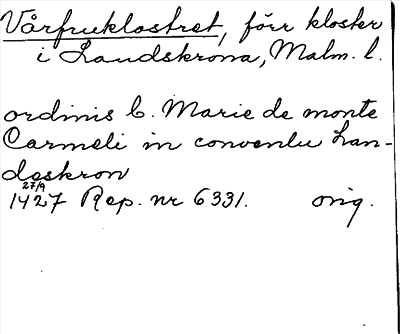 Vårfruklostret, förr kloster
i Landskrona, Malm. l.
ordinis b. Marie de monte
Carmeli in conventu Lan-
deskron
27/9
1427 Rep. nr 6331. orig.